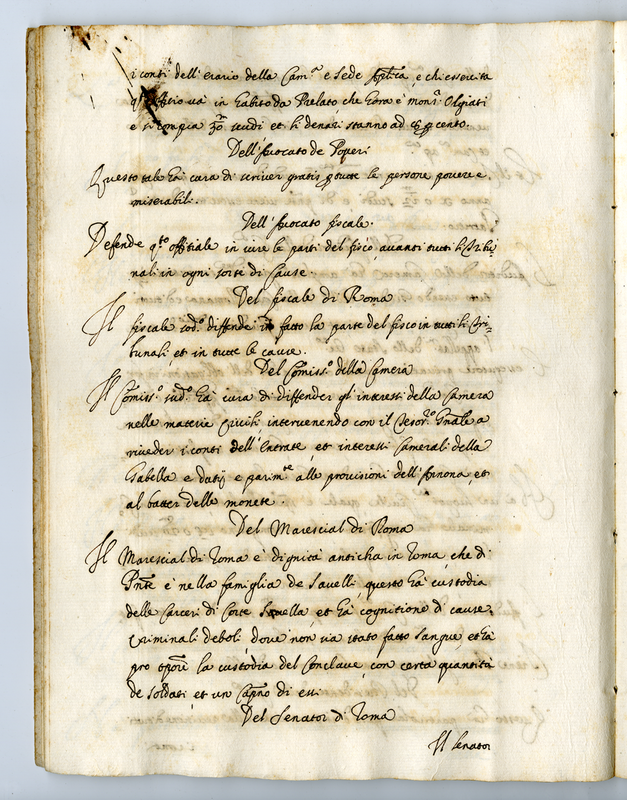 i conti dell'erario della Cam.ª e Sede Aplica, e chi essercita
q.to offitio và in habito da Prelato che hora è mons.r Olgiati
e si compra scudi et li denari stanno ad per cento.
Dell'Avocato de Poveri
Questo tale hà cura di scriver gratis p tutte le persone povere e
miserabili.
Dell'Avocato fiscale.
Defende q.to offitiale in iure le parti del fisco, avanti tutti li Tribu-
nali in ogni sorte di Cause.
Del fiscale di Roma
Il fiscale sod.o diffende in fatto la parte del fisco in tutti li Tri-
bunali, et in tutte le cause.
Del Comiss.o della Camera
Il Comiss.o sud.o hà cura di diffender gl'interessi della Camera
nelle materie Civili intervenendo con il Tesor.o Gnale a
riveder i conti dell'Entrate, et interessi Camerali della
Gabella, e datij e parim.te alle provisioni dell'Annona, et
al batter delle monete.
Del Marescial di Roma
Il Marescial di Roma è dignità anticha in Roma, che di
Pnte è nella famiglia de Savelli, questo hà custodia
delle Carceri di Corte Savella, et hà cognitione di cause
Criminali deboli, dove non sia stato fatto sangue, et hà
pro tpore la custodia del Conclave, con certa quantità
de soldati, et un Capno di essi.
Del Senator di Roma
Il Senator